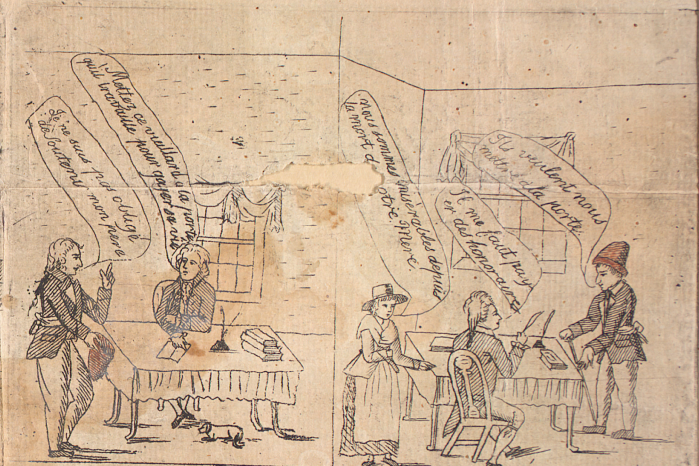 Je ne suis pas obligé
de soutenir mon pere
Mettez ce vieillard a la porte
qu'il travaille pour gager sa vie
nous sommes miserables depuis
la mort d otre Mere.
Il me faut pay
er des honoraires
Ils veulent nous
mettre a la porte